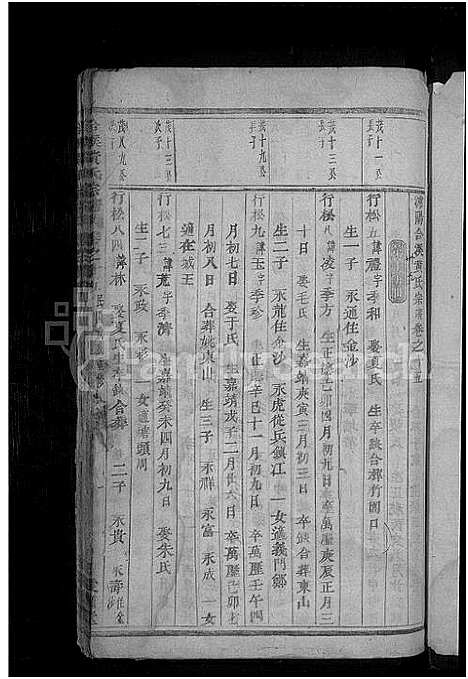 合溪黃氏宗譜卷之十五
茂十一公長子
行松五 諱禮 字季和 娶夏氏 生卒缺合葬竹園口
生一子 永通住金沙
茂十三公長子
行松八 諱凌 字季方 生正德己卯四月初九日卒萬歷庚辰正月三
十日 娶毛氏 生嘉靖庚寅三月初三日 卒缺合葬東山
生二子 永龍住金沙 永虎從兵鎮江 一女適義門鄭
茂十九公長子
行松九 諱玉 字季珍 生正德辛巳十一月初九日 卒萬歷壬午四
月初七日 娶于氏 生嘉靖戊子二月廿六日 卒萬歷己卯七
月初八日 合葬姚東山 生三子 永祥 永富 永成 一女
適在城王
茂十三公次子
行松七三 諱 字季濟 生嘉靖癸未四月初九日 娶朱氏
生二子 永政 永杉 一女適塘頭周
行松八四 諱林 娶夏氏生卒缺合葬 二子 永貴 永靜